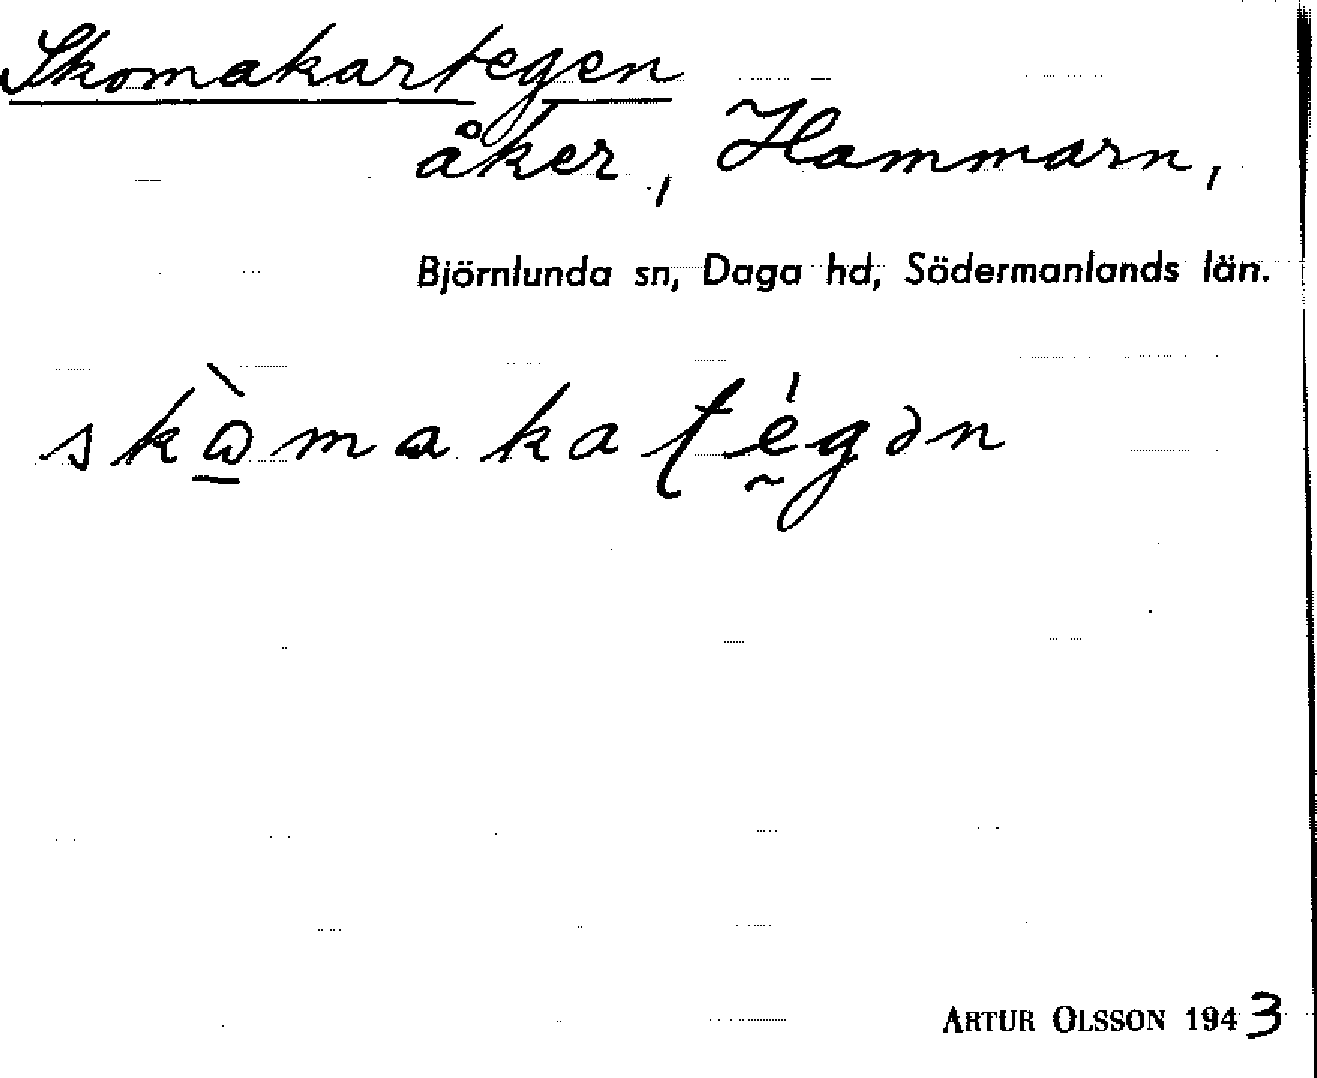 Skomakartegen
åker, Hammarn,
Björnlunda sn, Daga hd, Södermanlands län.
skò̱makaʈḛ́gən
ARTUR OLSSON 1943